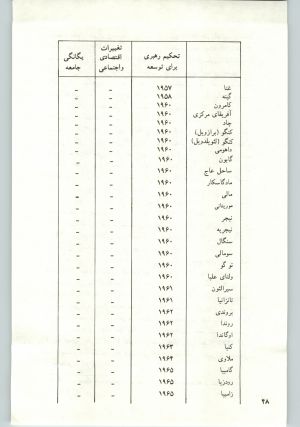 تحکیم رهبری برای توسعه | تغییرات اقتصادی واجتماعی | یگانگی جامعه
غنا ۱۹۵۷ - -
گینه ۱۹۵۸ - -
کامرون ۱۹۶۰ - -
آفریقای مرکزی ۱۹۶۰ - -
چاد ۱۹۶۰ - -
کنگو (برازویل) ۱۹۶۰ - -
کنگو (لئوپلدویل) ۱۹۶۰ - -
داهومی ۱۹۶۰ - -
گابون ۱۹۶۰ - -
ساحل عاج ۱۹۶۰ - -
ماداگاسکار ۱۹۶۰ - -
مالی ۱۹۶۰ - -
موریتانی ۱۹۶۰ - -
نیجر ۱۹۶۰ - -
نیجریه ۱۹۶۰ - -
سنگال ۱۹۶۰ - -
سومالی ۱۹۶۰ - -
تو گو ۱۹۶۰ - -
ولتای علیا ۱۹۶۰ - -
سیرالئون ۱۹۶۱ - -
تانزانیا ۱۹۶۱ - -
بروندی ۱۹۶۲ - -
روندا ۱۹۶۲ - -
اوگاندا ۱۹۶۲ - -
کنیا ۱۹۶۳ - -
ملاوی ۱۹۶۴ - -
گامبیا ۱۹۶۵ - -
رودزیا ۱۹۶۵ - -
زامبیا ۱۹۶۵ - -
۲۸